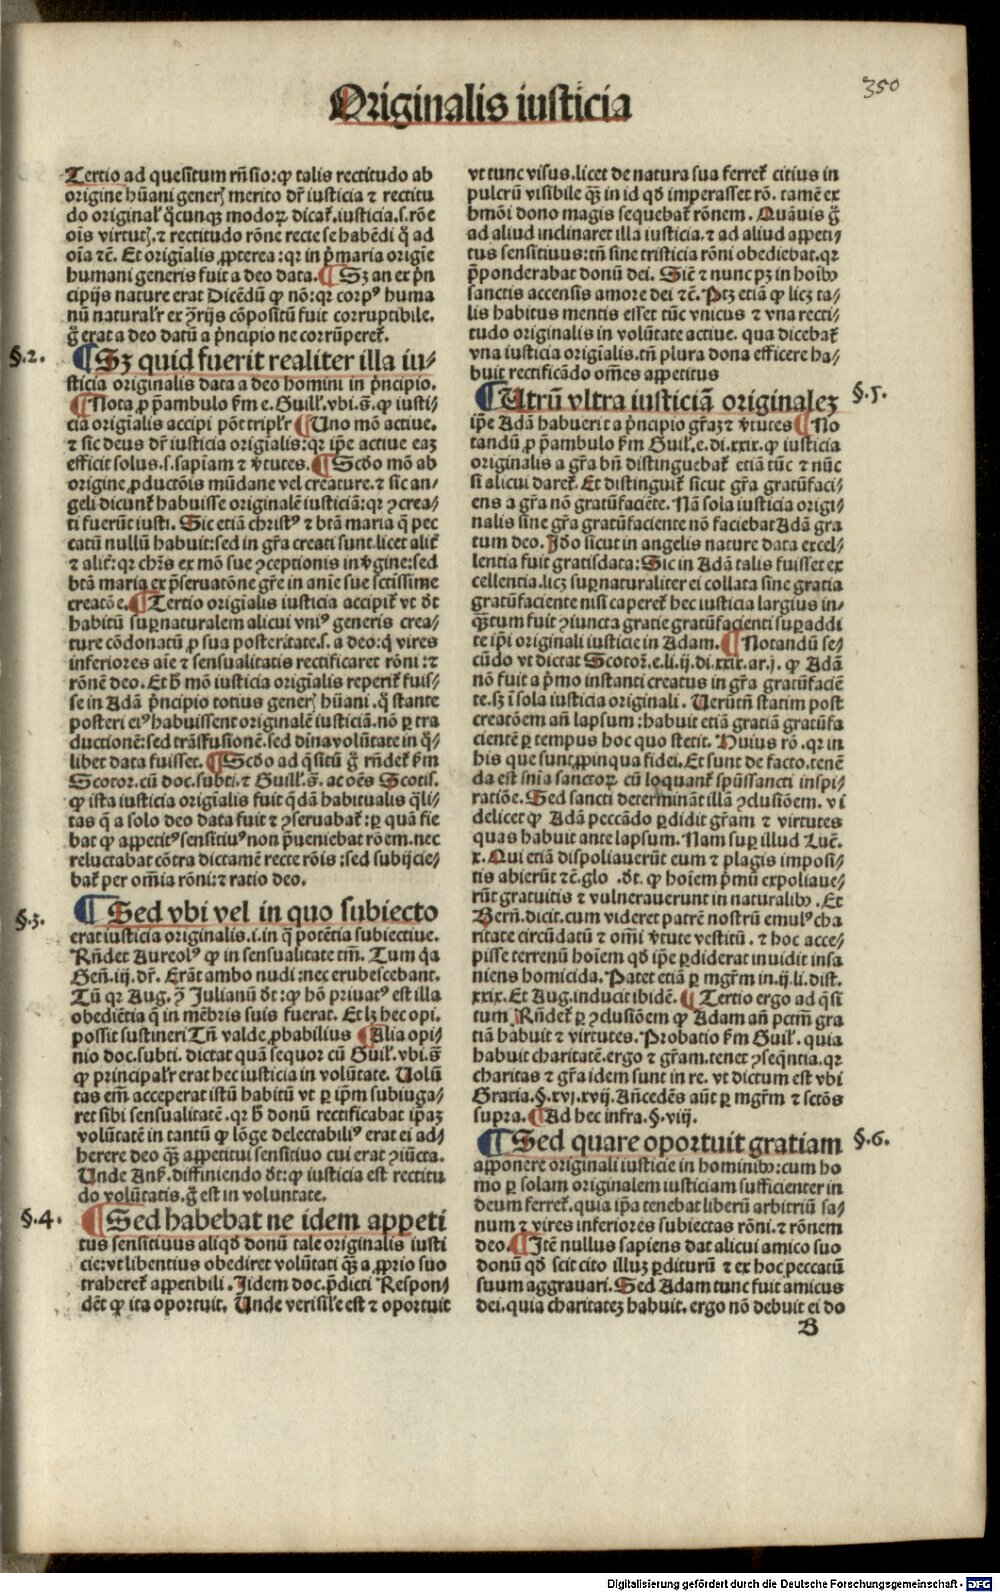 Originalis iusticia
350
Tertio ad quesitum rn̄sio: ꝙ talis rectitudo ab
origine hūani gener merito dr̄ iusticia ⁊ rectitu
do original q̄cunqꝫ modoꝝ dicat̄. iusticia .s. rōe
oīs virtut. ⁊ rectitudo rōne recte se habēdi q̄ ad
oīa ⁊c̄. Et origīalis ꝓpterea: qr in p̄maria origīe
humani generis fuit a deo data. ¶ Sꝫ an ex p̄n
cipijs nature erat Dicēdū ꝙ nō: qr corpꝰ huma
nū naturalr̄ ex ꝯ̄rijs cōpositū fuit corruptibile.
g̊ erat a deo datū a p̄ncipio ne corrūperet̄.
§.2.
¶ Sꝫ quid fuerit realiter illa iu⸗
sticia originalis data a deo homini in p̄ncipio.
¶ Nota ꝓ p̄ambulo ẜm e. Guill. vbi .s̄. ꝙ iusti⸗
cia originalis accipi pōt triplr̄ ¶ Uno mō actiue.
⁊ sic deus dr̄ iusticia origīalis: qr ip̄e actiue eaꝫ
efficit solus .s. sapīam ⁊ v̄tutes. ¶ Scd̄o mō ab
origine ꝓductōis mūdane vel creature. ⁊ sic an⸗
geli dicunt̄ habuisse originalē iusticiā: qr ꝯcrea⸗
ti fuerūt iusti. Sic etiā christꝰ ⁊ btā maria q̄ pec
catū nullū habuit: sed in gr̄a creati sunt. licet alit̄
⁊ alit̄: qr chrs̄ ex mō sue ꝯceptionis in v̄gine: sed
btā maria ex p̄seruatōne gr̄e in anīe sue sctīssime
creatōe. ¶ Tertio origīalis iusticia accipit̄ vt dr̄t
habitū suꝑnaturalem alicui vniꝰ generis crea⸗
ture cōdonatū ꝓ sua posteritate .s. a deo: q̄ vires
inferiores aīe ⁊ sensualitatis rectificaret rōni: ⁊
rōnē deo. Et h̄ mō iusticia origīalis reperit̄ fuis⸗
se in Adā p̄ncipio totius gener hūani. q̄ stante
posteri eiꝰ habuissent originalē iusticiā. nō ꝑ tra
ductionē: sed trāsfusionē. sed dīna volūtate in q̄⸗
libet data fuisset. ¶ Scd̄o ad q̄sitū g̊ rn̄det̄ ẜm
Scotor. cū doc. subti. ⁊ Guill. s̄. ac oēs Scotis.
ꝙ ista iusticia origīalis fuit q̄dā habitualis q̄li⸗
tas q̄ a solo deo data fuit ⁊ ꝯseruabat̄: ꝑ quā fie
bat ꝙ appetitꝰ sensitiuꝰ non p̄ueniebat rōem. nec
reluctabat cōtra dictamē recte rōis: sed subijcie⸗
bat̄ per om̄ia rōni: ⁊ ratio deo.
§.3.
¶ Sed vbi vel in quo subiecto
erat iusticia originalis .i. in q̄ potētia subiectiue.
Rn̄det Aureolꝰ ꝙ in sensualitate tm̄. Tum q̄a
Gen̄. iij. dr̄. Erāt ambo nudi: nec erubescebant.
Tū qr Aug. ꝯ̄ Julianū dr̄t: ꝙ hō priuatꝰ est illa
obediētia q̄ in mēbris suis fuerat. Et lꝫ hec opi.
possit sustineri Tn̄ valde ꝓbabilius ¶ Alia opi⸗
nio doc. subti. dictat quā sequor cū Guil. vbi .s̄
ꝙ principalr̄ erat hec iusticia in volūtate. Uolū
tas em̄ acceperat istū habitū vt ꝑ ip̄m subiuga⸗
ret sibi sensualitatē. qr h̄ donū rectificabat ip̄aꝫ
volūtatē in tantū ꝙ lōge delectabiliꝰ erat ei ad⸗
herere deo q̄ꝫ appetitui sensitiuo cui erat ꝯiūcta.
Unde Ans. diffiniendo dr̄t: ꝙ iusticia est rectitu
do volūtatis. g̊ est in voluntate.
§.4.
¶ Sed habebat ne idem appeti
tus sensitiuus aliqd̄ donū tale originalis iusti
cie: vt libentius obediret volūtati q̄ꝫ a ꝓprio suo
traheret̄ appetibili. Jidem doc. p̄dicti Respon⸗
dēt ꝙ ita oportuit. Unde verisile est ⁊ oportuit
vt tunc visus. licet de natura sua ferret̄ citius in
pulcrū visibile q̄ꝫ in id qd̄ imperasset rō. tamē ex
hmōi dono magis sequebat̄ rōnem. Quāuis g̊
ad aliud inclinaret illa iusticia. ⁊ ad aliud appeti⸗
tus sensitiuus: tn̄ sine tristicia rōni obediebat. qr
p̄ponderabat donū dei. Sic̄ ⁊ nunc pꝫ in hoībꝰ
sanctis accensis amore dei ⁊c̄. Ptꝫ etiā ꝙ licꝫ ta⸗
lis habitus mentis esset tūc vnicus ⁊ vna recti⸗
tudo originalis in volūtate actiue. qua dicebat̄
vna iusticia origīalis. tn̄ plura dona efficere ha⸗
buit rectificādo om̄es appetitus
§.5.
¶ Utrū vltra iusticiā originaleꝫ
ip̄e Adā habuerit a p̄ncipio gr̄aꝫ ⁊ v̄tutes ¶ No
tandū ꝓ p̄ambulo ẜm Guil. e. di. xxix. ꝙ iusticia
originalis a gr̄a bn̄ distinguebat̄ etiā tūc ⁊ nūc
si alicui daret̄. Et distinguit̄ sicut gr̄a gratūfaci⸗
ens a gr̄a nō gratūfaciēte. Nā sola iusticia origi⸗
nalis sine gr̄a gratūfaciente nō faciebat Adā gra
tum deo. Jdo sicut in angelis nature data excel⸗
lentia fuit gratisdata: Sic in Adā talis fuisset ex
cellentia. licꝫ suꝑnaturaliter ei collata sine gratia
gratūfaciente nisi caperet̄ hec iusticia largius in⸗
q̄ꝫtum fuit ꝯiuncta gratie gratūfacienti suꝑaddi
te ip̄i originali iusticie in Adam. ¶ Notandū se⸗
cūdo vt dictat Scotor. e. li. ij. di. xxix. ar. j. ꝙ Adā
nō fuit a p̄mo instanti creatus in gr̄a gratūfaciē
te. sꝫ ī sola iusticia originali. Uerūtn̄ statim post
creatōem an̄ lapsum: habuit etiā gratiā gratūfa
cientē ꝑ tempus hoc quo stetit. Huius rō. qr in
his que sunt ꝓpinqua fidei. Et sunt de facto. tenē
da est sn̄ia sanctoꝝ cū loquant̄ spūssancti inspi⸗
ratiōe. Sed sancti determināt illā ꝯclusiōem. vi
delicet ꝙ Adā peccādo ꝑdidit gr̄am ⁊ virtutes
quas habuit ante lapsum. Nam suꝑ illud Luc̄.
x. Qui etiā dispoliauerūt eum ⁊ plagis imposi⸗
tis abierūt ⁊c̄. glo. dr̄t. ꝙ hoīem p̄mū expoliaue⸗
rūt gratuitis ⁊ vulnerauerunt in naturalibꝰ. Et
Bern̄. dicit. cum videret patrē nostrū emulꝰ cha
ritate circūdatū ⁊ om̄i v̄tute vestitū. ⁊ hoc acce⸗
pisse terrenū hoīem qd̄ ip̄e ꝑdiderat inuidit insa
niens homicida. Patet etiā ꝑ mgr̄m in .ij. li. dist.
xxix. Et Aug. inducit ibidē. ¶ Tertio ergo ad q̄si
tum Rn̄det̄ ꝑ ꝯclusiōem ꝙ Adam an̄ pctm̄ gra
tiā habuit ⁊ virtutes. Probatio ẜm Guil. quia
habuit charitatē. ergo ⁊ gr̄am. tenet ꝯseq̄ntia. qr
charitas ⁊ gr̄a idem sunt in re. vt dictum est vbi
Gratia. §. xvj. xvij. An̄cedēs aūt ꝑ mgr̄m ⁊ sctōs
supra. ¶ Ad hec infra. §. viij.
§.6.
¶ Sed quare oportuit gratiam
apponere originali iusticie in hominibꝰ: cum ho
mo ꝑ solam originalem iusticiam sufficienter in
deum ferret̄. quia ip̄a tenebat liberū arbitriū sa⸗
num ⁊ vires inferiores subiectas rōni. ⁊ rōnem
deo. ¶ Jtē nullus sapiens dat alicui amico suo
donū qd̄ scit cito illuꝫ ꝑditurū ⁊ ex hoc peccatū
suum aggrauari. Sed Adam tunc fuit amicus
dei. quia charitateꝫ habuit. ergo nō debuit ei do
B
Digitalisierung gefördert durch die Deutsche Forschungsgemeinschaft - DFG